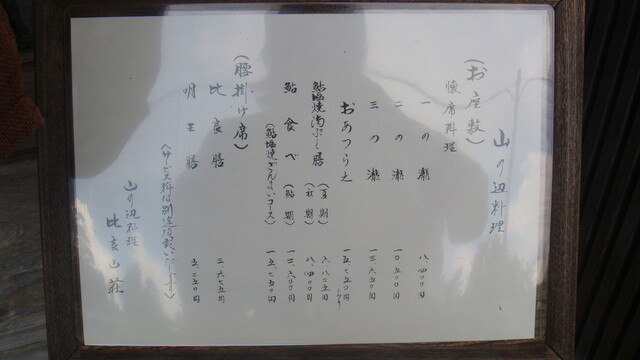 山の辺料理
(お座敷)
懐席料理
一の瀬 八、四〇〇円
二の瀬 一〇、五〇〇円
三の瀬 一三、六五〇円
おあつらえ 一五、七五〇円より
鮎塩焼 膳 (夏期) 六、八二五円
(秋期) 八、四〇〇円
鮎食べ (鮎期) 一三、六〇〇円
(鮎塩焼ざんまいコース) 一五、七五〇円
(腰掛け席)
比良膳 二、六七五円
明王膳 五、二五〇円
(サービス料は別途頂戴いたします)
山の辺料理
比良山荘